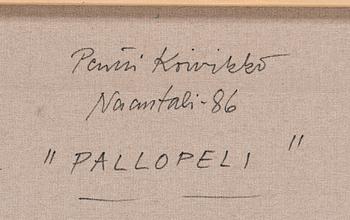 Pentti Koivikko
Naantali-86
" PALLOPELI "